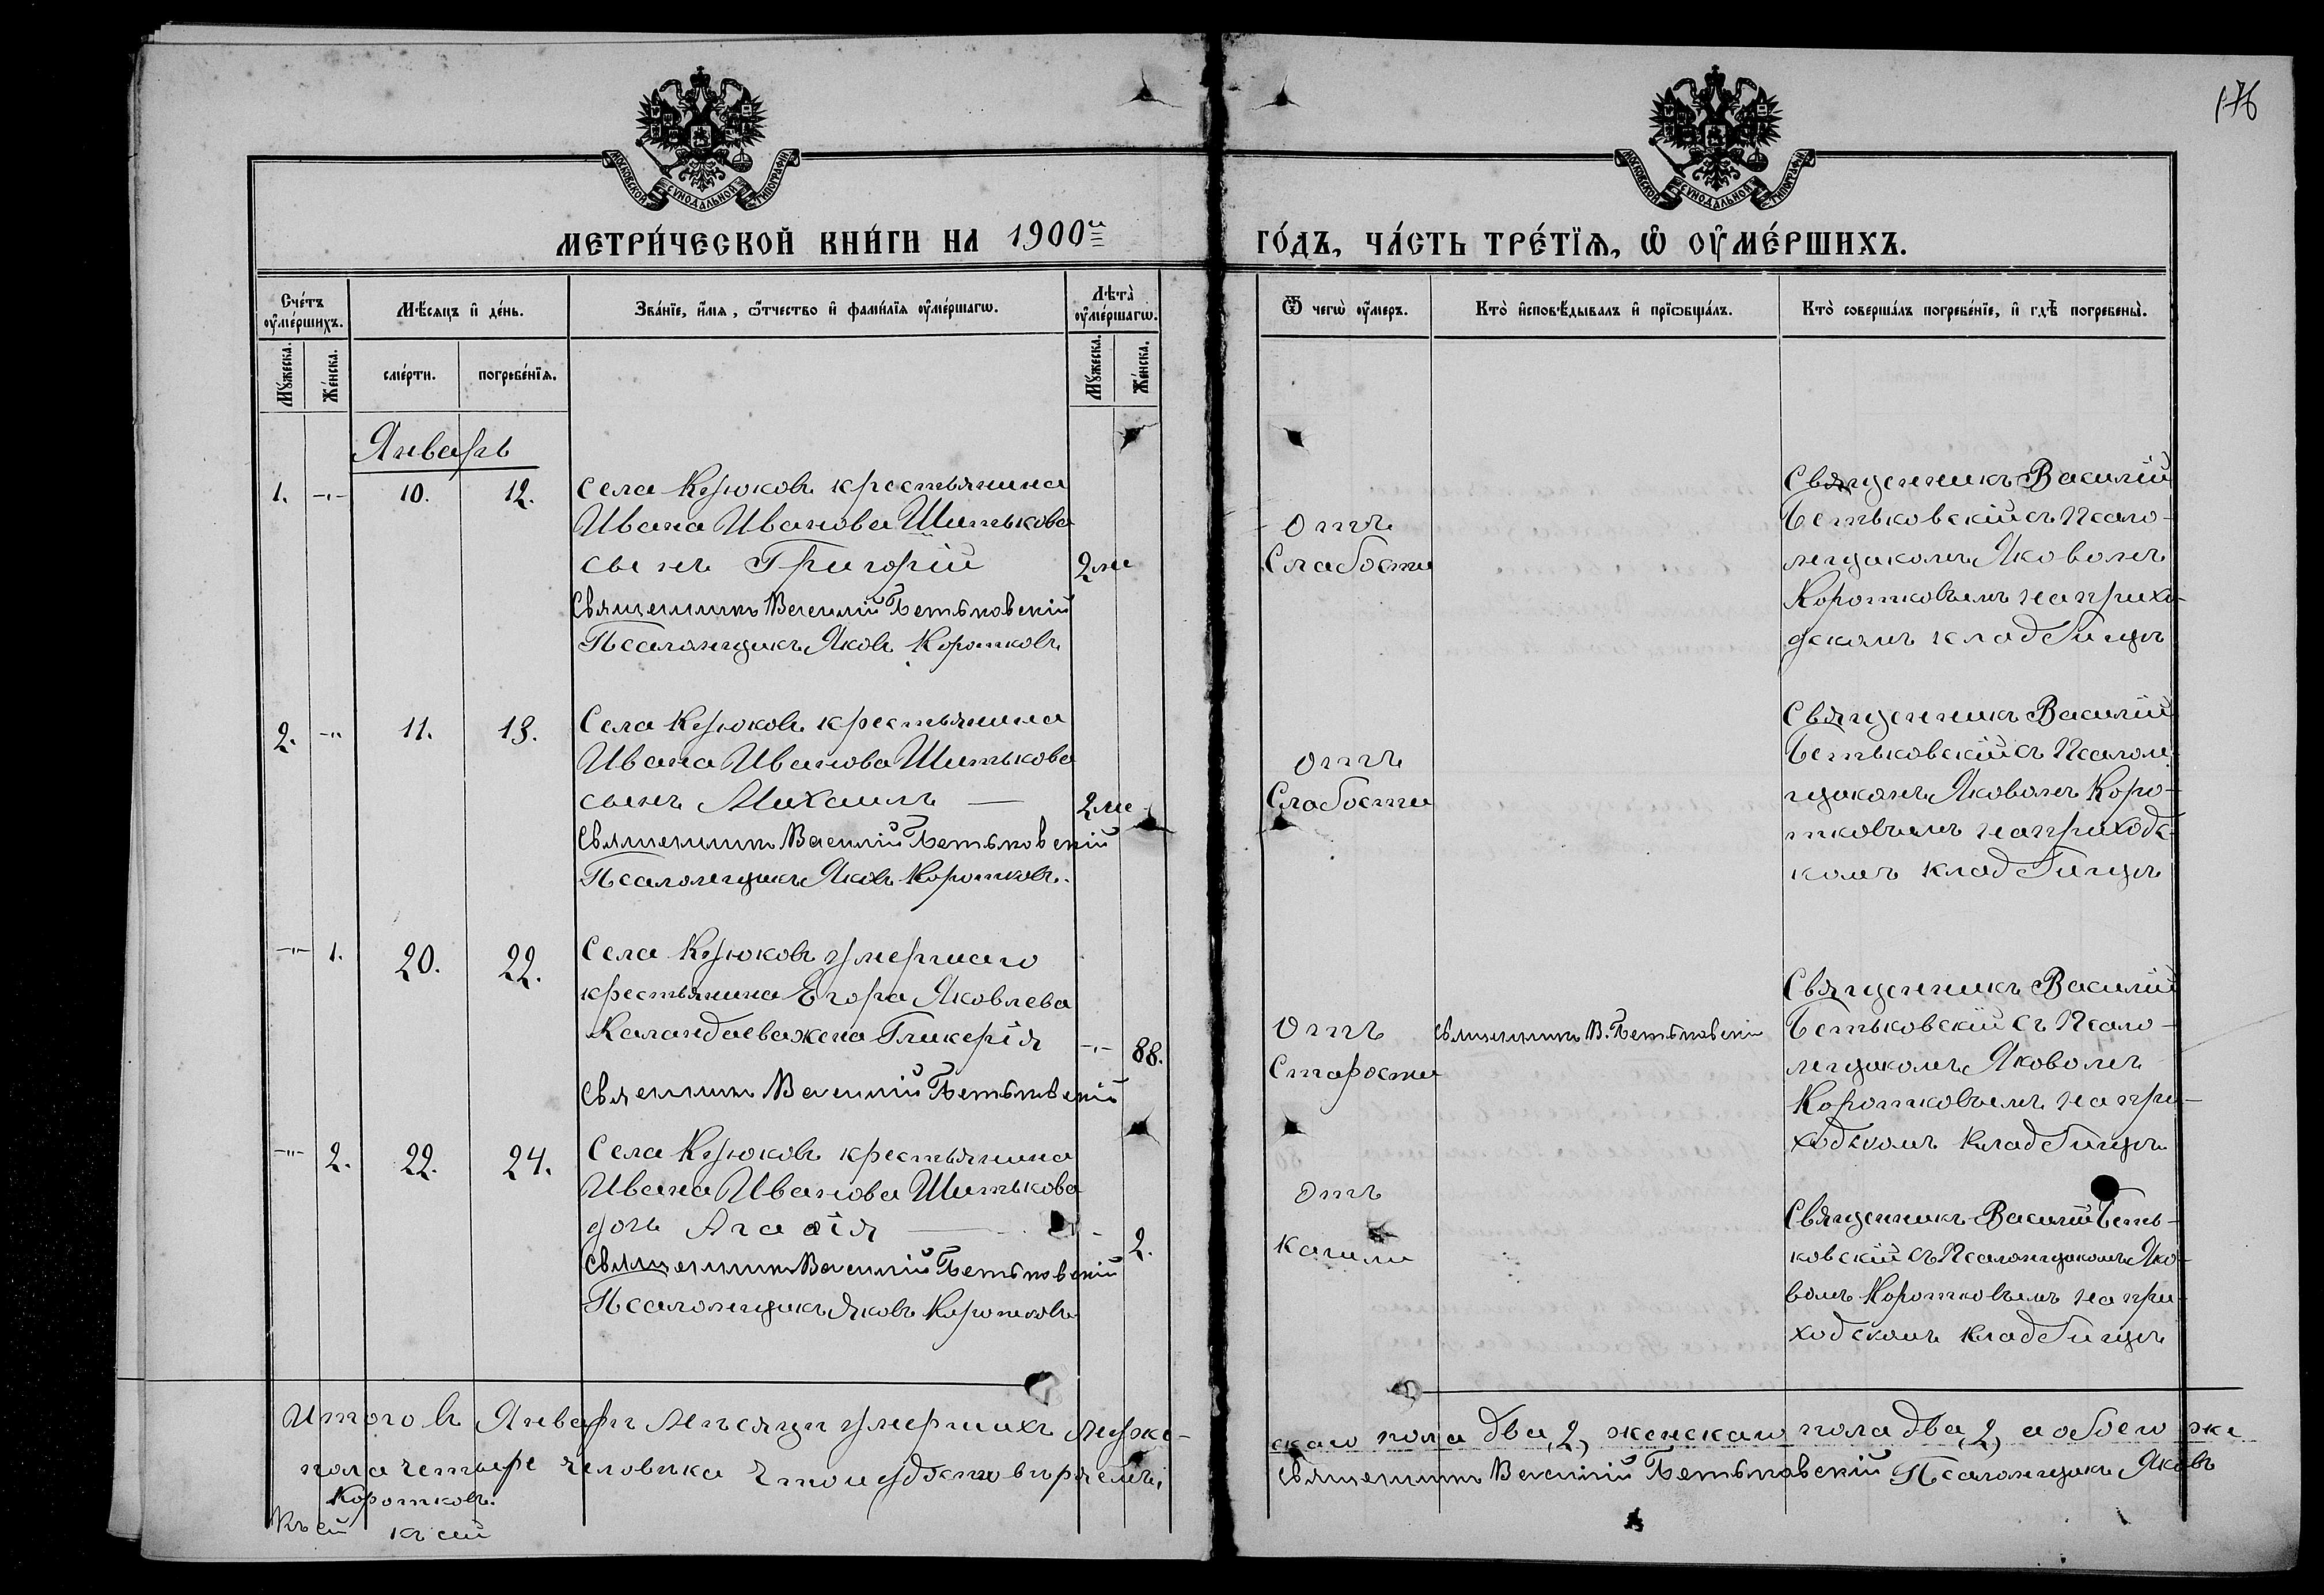 176
МОСКОВСКОЙ СѴНОДАЛЬНОЙ ТИПОГРАФІИ
МОСКОВСКОЙ СѴНОДАЛЬНОЙ ТИПОГРАФІИ
МЕТРИ́ЧЕСКОЙ КНИ́ГИ НА 1900й
ГО́ДЪ, ЧА́СТЬ ТРЕ́ТЇѦ, Ѡ҆ ОУ҆МЕ́РШИХЪ.
Сче́тъ оу҆ме́ршихъ.
Мѣ́сѧцъ и҆ де́нь.
Зва́нїе, и҆́мѧ, ѻ҆́тчество и҆ фами́лїѧ оу҆ме́ршагѡ.
Лѣ̑та оу҆ме́ршагѡ.
Мꙋ́жеска.
Же́нска.
сме́рти.
погребе́нїѧ.
Мꙋ́жеска.
Же́нска.
Ѿ чегѡ̀ оу҆́меръ.
Кто̀ и҆сповѣ́дывалъ и҆ прїѡбща́лъ.
Кто̀ соверша́лъ погребе́нїе, и҆ гдѣ̀ погребены̀.
Январь
1. -"- 10. 12. Села Крюковъ крестьянина
Ивана Иванова Шитькова
сынъ Григорій 2 ме
Священникъ Василій Бетьковскій
Псаломщикъ Яковъ Коротковъ
Отъ
Слабости
Священникъ Василій
Бетьковскій съ Псало-
мщикомъ Яковомъ
Коротковымъ на прихо-
дскомъ кладбищѣ
2. -"- 11. 13. Села Крюковъ крестьянина
Ивана Иванова Шитькова
сынъ Михаилъ — 2 ме
Священникъ Василій Бетьковскій
Псаломщикъ Яковъ Коротковъ.
Отъ
Слабости
Священникъ Василій
Бетьковскій съ Псалом-
щикомъ Яковомъ Коро-
тковымъ на приходс-
комъ кладбищѣ
-"- 1. 20. 22. Села Крюковъ умершаго
крестьянина Егора Яковлева
Каландаева жена Гликерія -"- 88.
Священникъ Василій Бетьковскій
Отъ
Старости
Священникъ В. Бетьковскій
Священникъ Василій
Бетьковскій съ Псало-
мщикомъ Яковомъ
Коротковымъ на при-
ходскомъ кладбищѣ
-"- 2. 22. 24. Села Крюковъ крестьянина
Ивана Иванова Шитькова
дочь Агаѳія — 2.
Священникъ Василій Бетьковскій
Псаломщикъ Яковъ Коротковъ
Отъ
Кашли
Священникъ Василій Беть-
ковскій съ Псаломщикомъ Яко-
вомъ Коротковымъ на при-
ходскомъ кладбищѣ
Итого въ Январѣ мѣсяцѣ умершихъ муже-
скаго пола два, 2, женскаго пола два, 2, а обоего же
пола четыре человѣка
Священникъ Василій Бетьковскій Псаломщикъ Яковъ
Коротковъ.
Къ сей къ сей